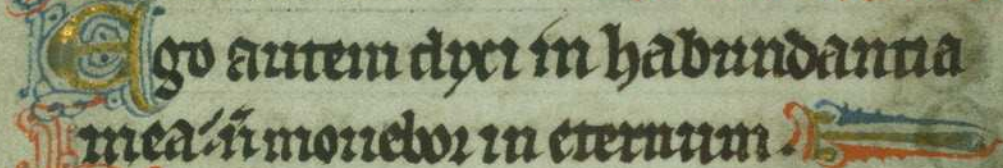 Ego autem dyxi in habundantia
mea˙ n̄ mouebor in eternum.